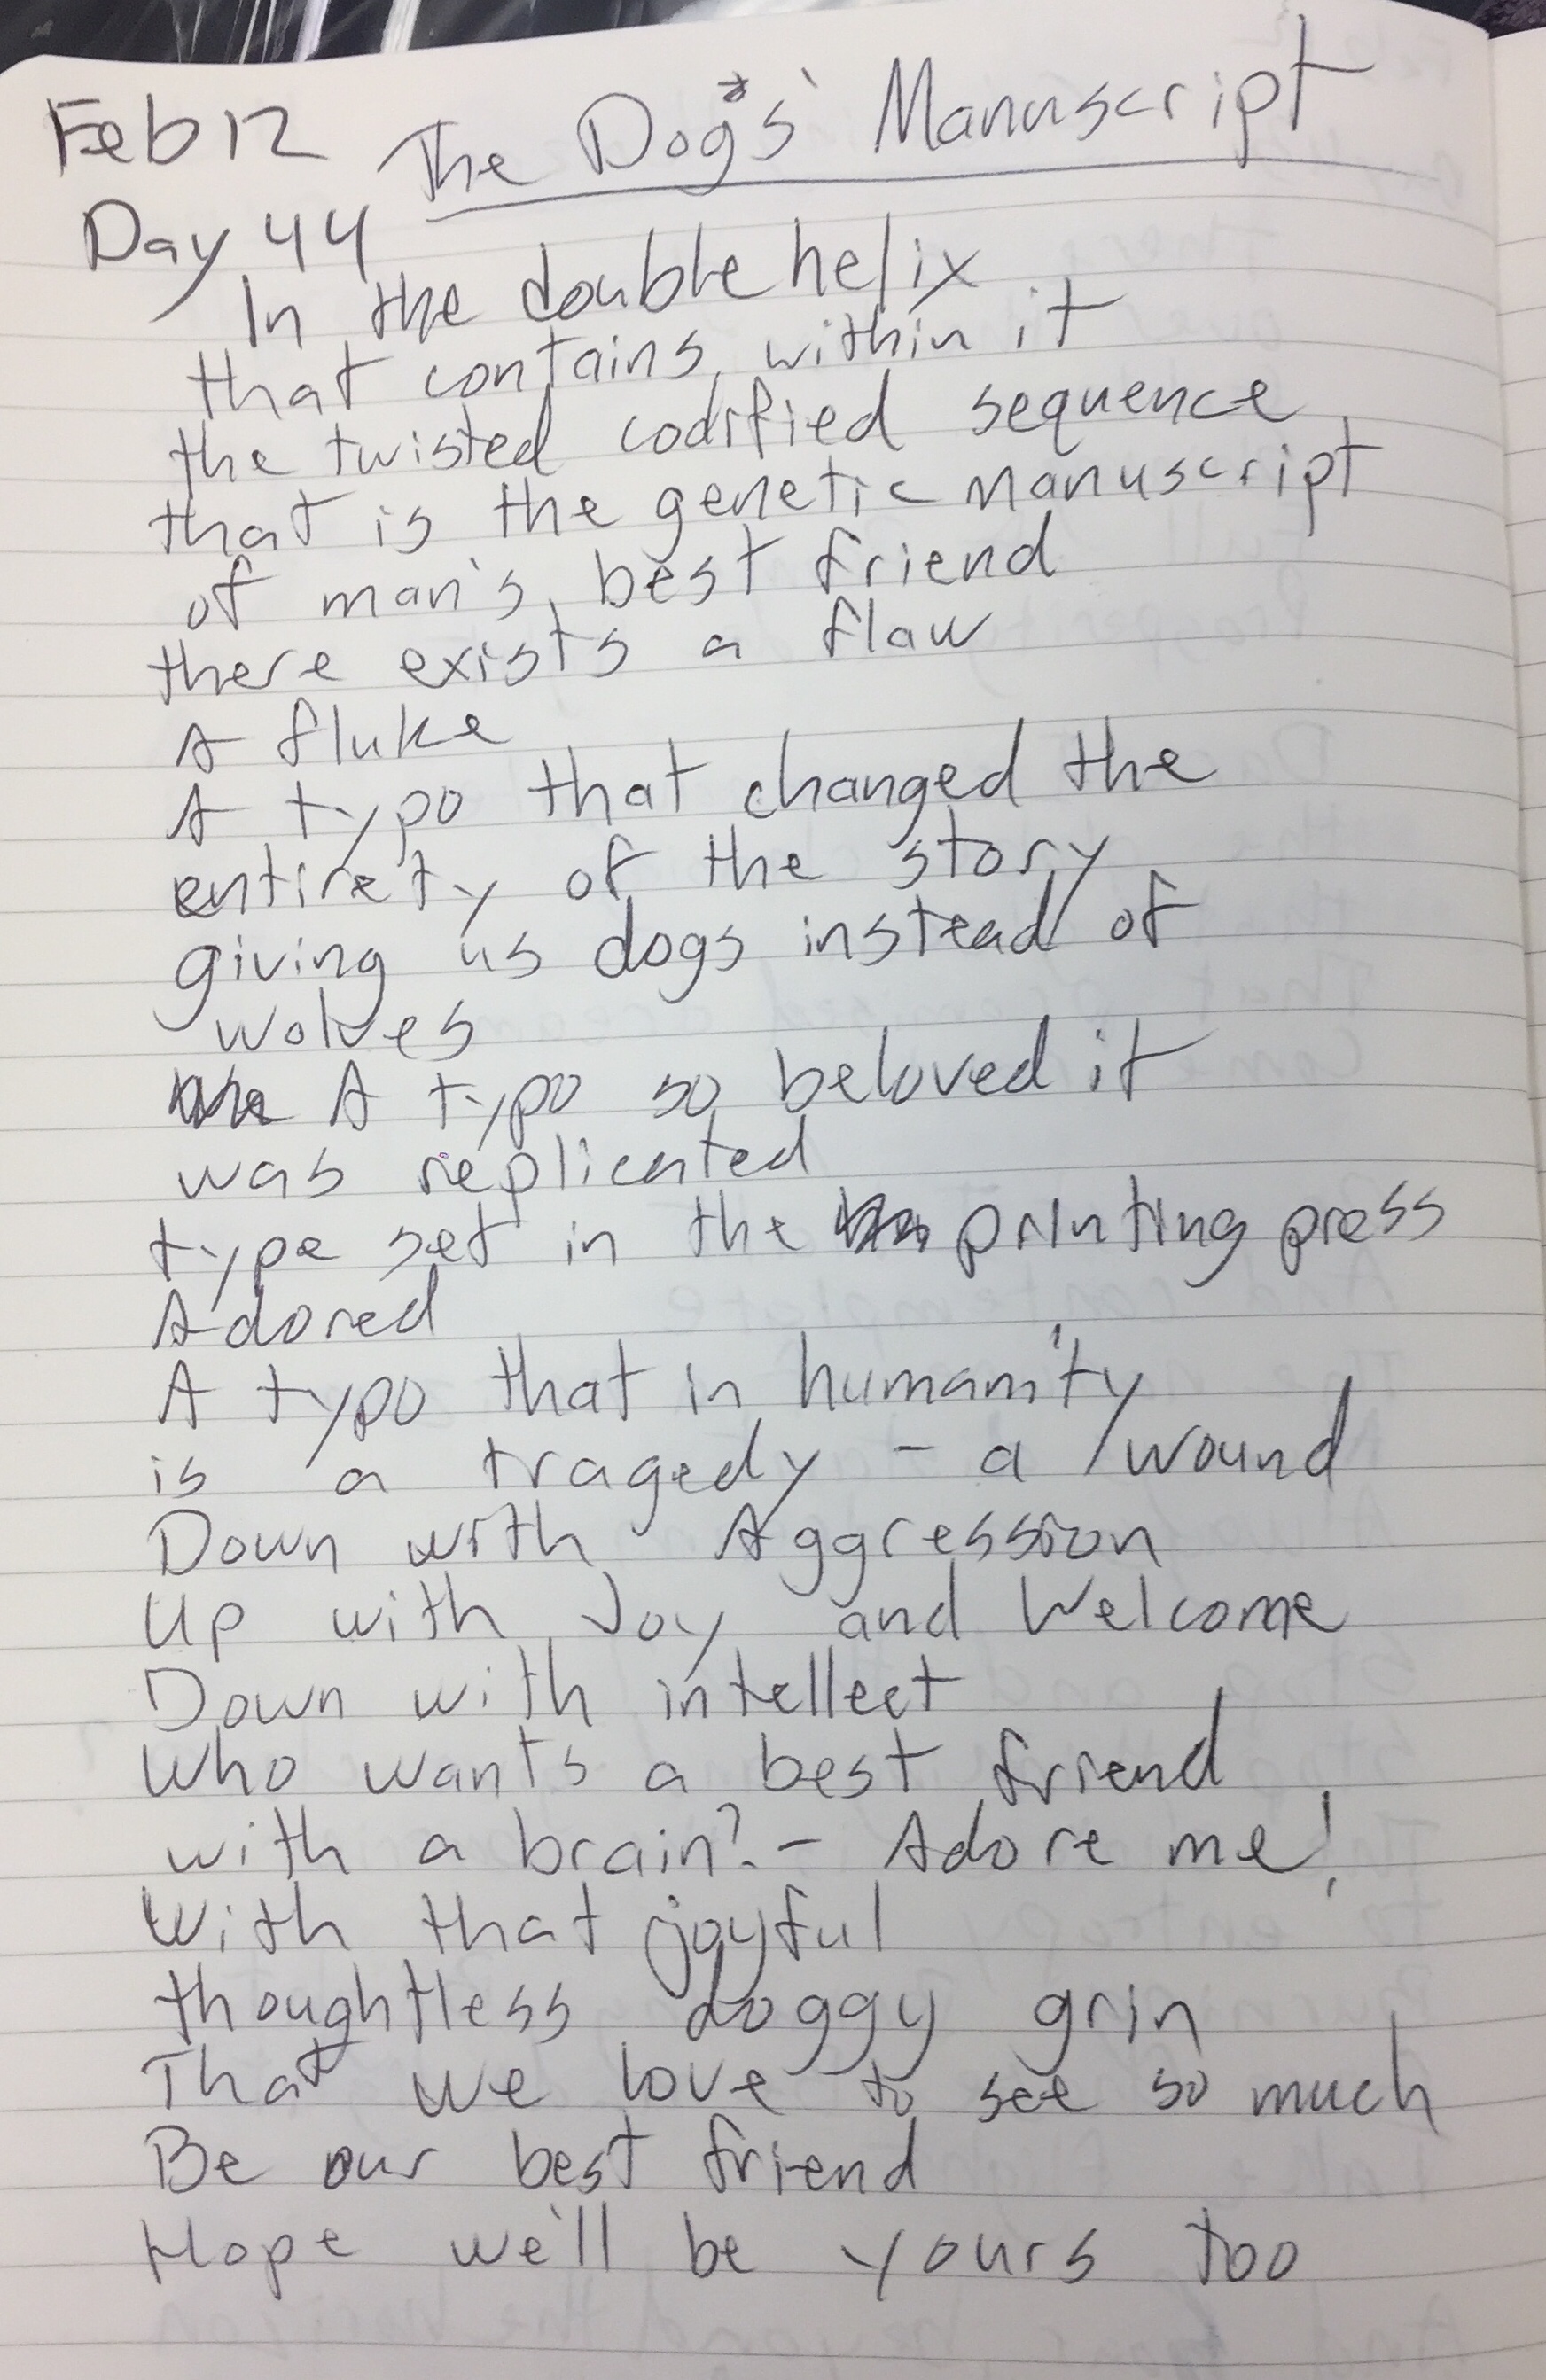 Feb 12 The Dogs' Manuscript
Day 44
In the double helix
that contains within it
the twisted codified sequence
that is the genetic manuscript
of man's best friend
there exists a flaw
A fluke
A typo that changed the
entirety of the story
giving us dogs instead of
wolves
A typo so beloved it
was replicated
type set in the printing press
Adored
A typo that in humanity
is a tragedy - a wound
Down with Aggression
Up with Joy and Welcome
Down with intellect
Who wants a best friend
with a brain? - Adore me!
With that joyful
thoughtless doggy grin
That we love to see so much
Be our best friend
Hope we'll be yours too